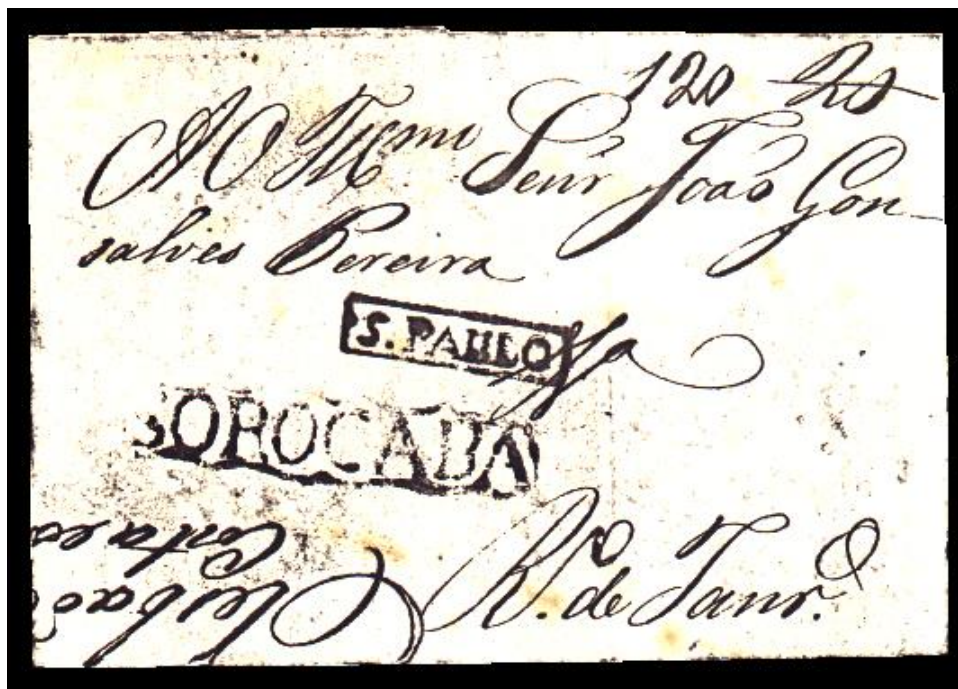 120
AO Illmo Senr João Gon-
salves Pereira
S. PAULO
SOROCABA
Rº. de Janrº.